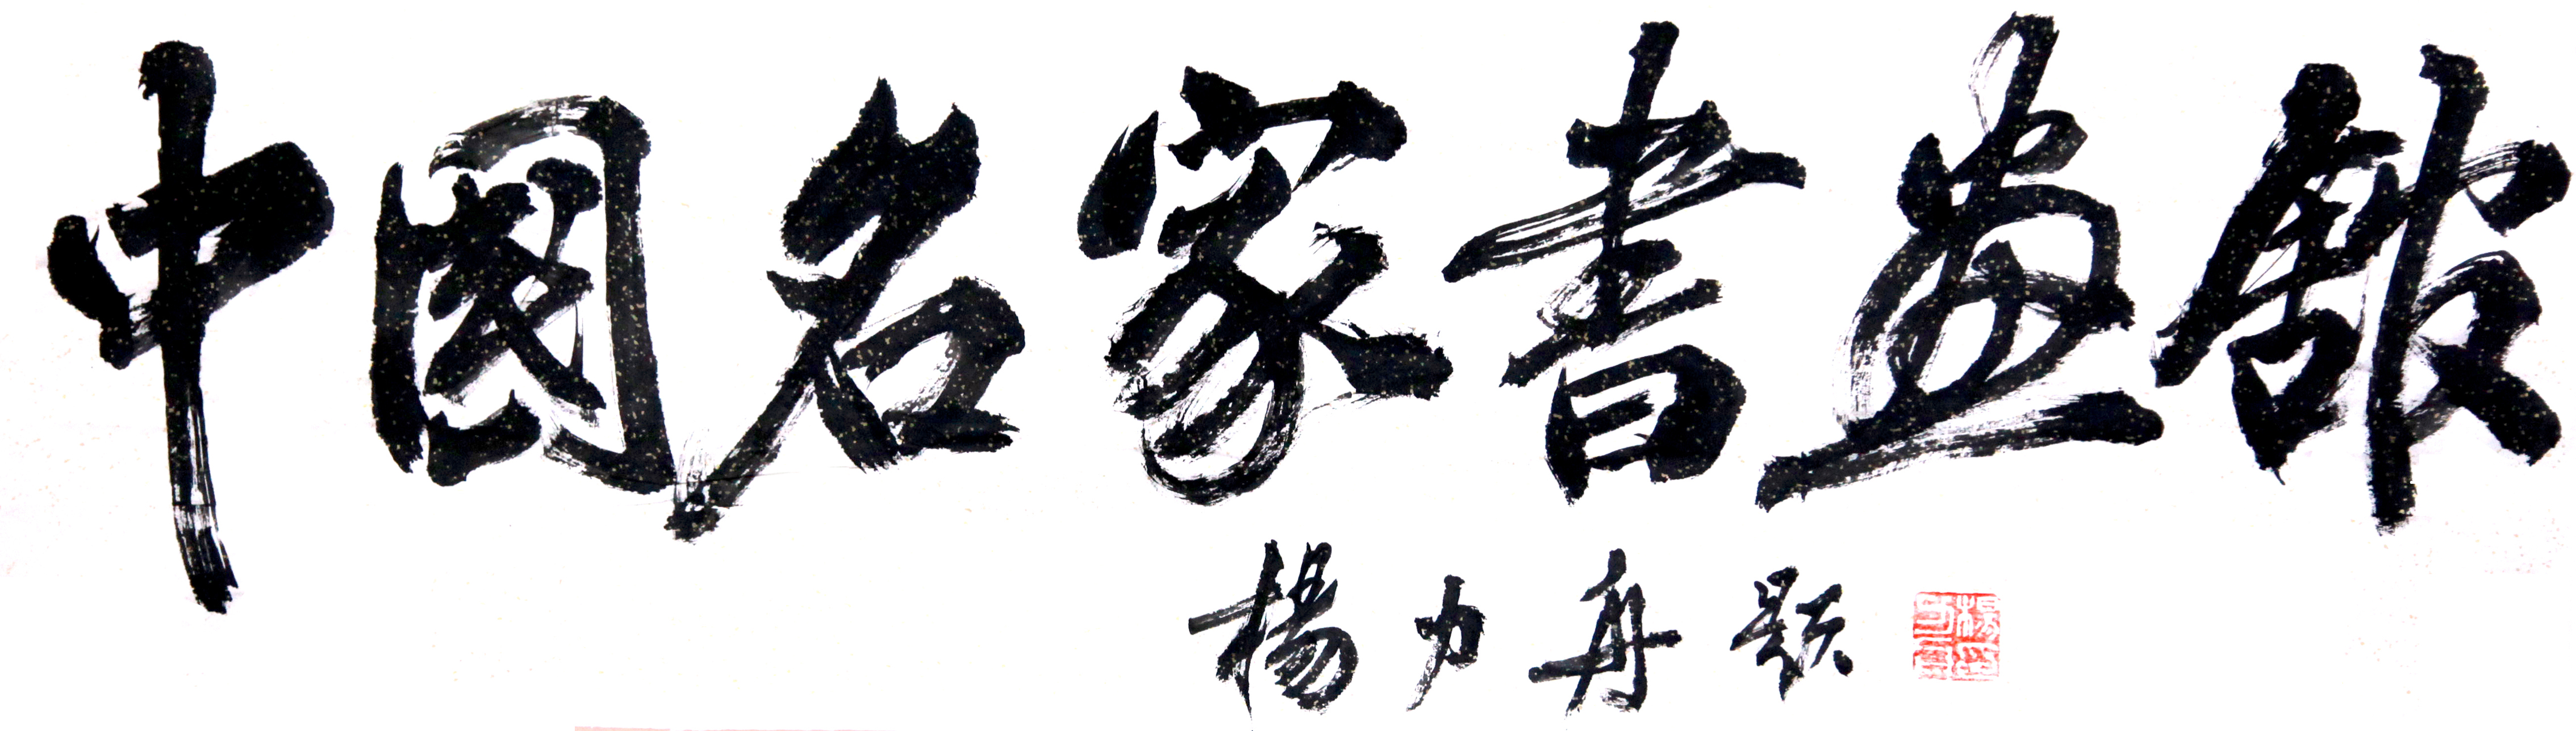 中國名家書畫館
楊力舟題